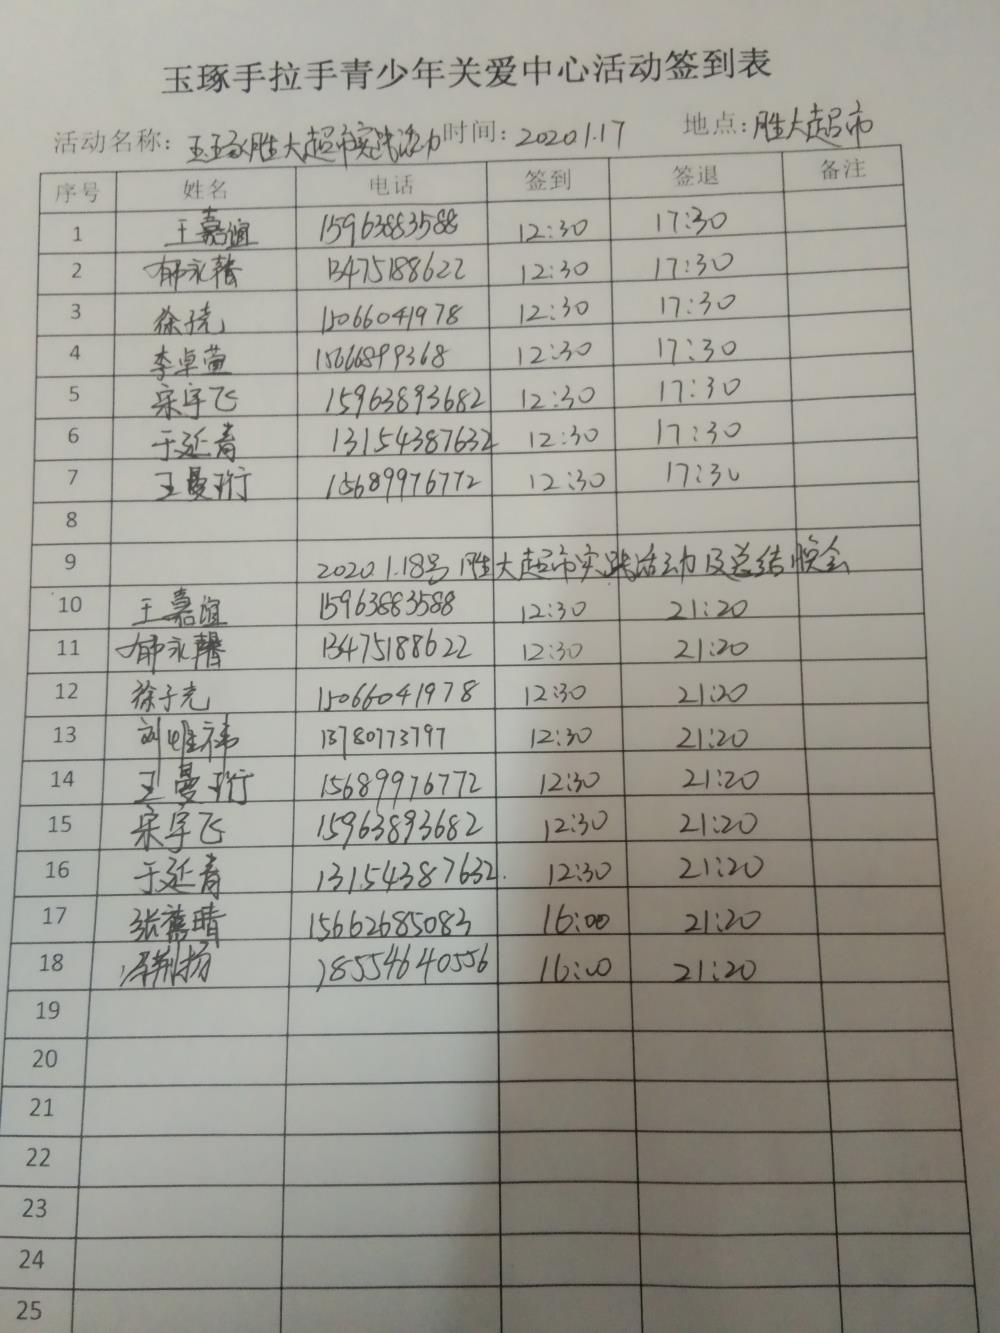 玉琢手拉手青少年关爱中心活动签到表
活动名称: 玉琢胜大超市实践活动 时间: 2020.1.17 地点: 胜大超市
序号 姓名 电话 签到 签退 备注
1 王嘉谊 15963883588 12:30 17:30
2 郁永馨 13475188622 12:30 17:30
3 徐子尧 15066041978 12:30 17:30
4 李卓萱 15666899368 12:30 17:30
5 宋宇飞 15963893682 12:30 17:30
6 于延青 13154387632 12:30 17:30
7 王曼珩 15689976772 12:30 17:30
8
9 2020.1.18号胜大超市实践活动及总结晚会
10 王嘉谊 15963883588 12:30 21:20
11 郁永馨 13475188622 12:30 21:20
12 徐子尧 15066041978 12:30 21:20
13 刘惟祎 13780773797 12:30 21:20
14 王曼珩 15689976772 12:30 21:20
15 宋宇飞 15963893682 12:30 21:20
16 于延青 13154387632. 12:30 21:20
17 张蓦晴 15662685083 16:00 21:20
18 18554640556 16:00 21:20
19
20
21
22
23
24
25